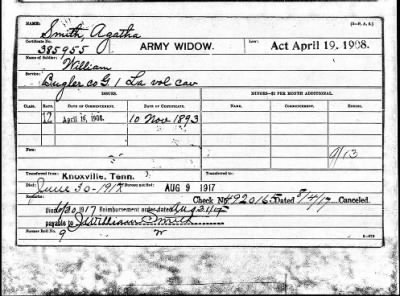 NAME: (3-F. A. A.)
Smith Agatha
Certificate No. 385955 ARMY WIDOW. Law: Act April 19, 1908.
Name of Soldier: William
Service: Bugler co G. 1 La vol cav
ISSUES. MINORS—$2 PER MONTH ADDITIONAL.
CLASS. RATE. DATE OF COMMENCEMENT. DATE OF CERTIFICATE. NAMES. COMMENCING. ENDING.
12 April 19, 1908. 10 Nov 1893
9/13
Transferred from Knoxville, Tenn. Transferred to:
Died: June 30-1917 Bureau notified: AUG 9 1917
Remarks: Check No 4920165 Dated 8/4/17 Canceled.
Died 6/30 1917 Reimbursement order dated Aug 21/17
payable to J William Smith
Former Roll No.
9 W